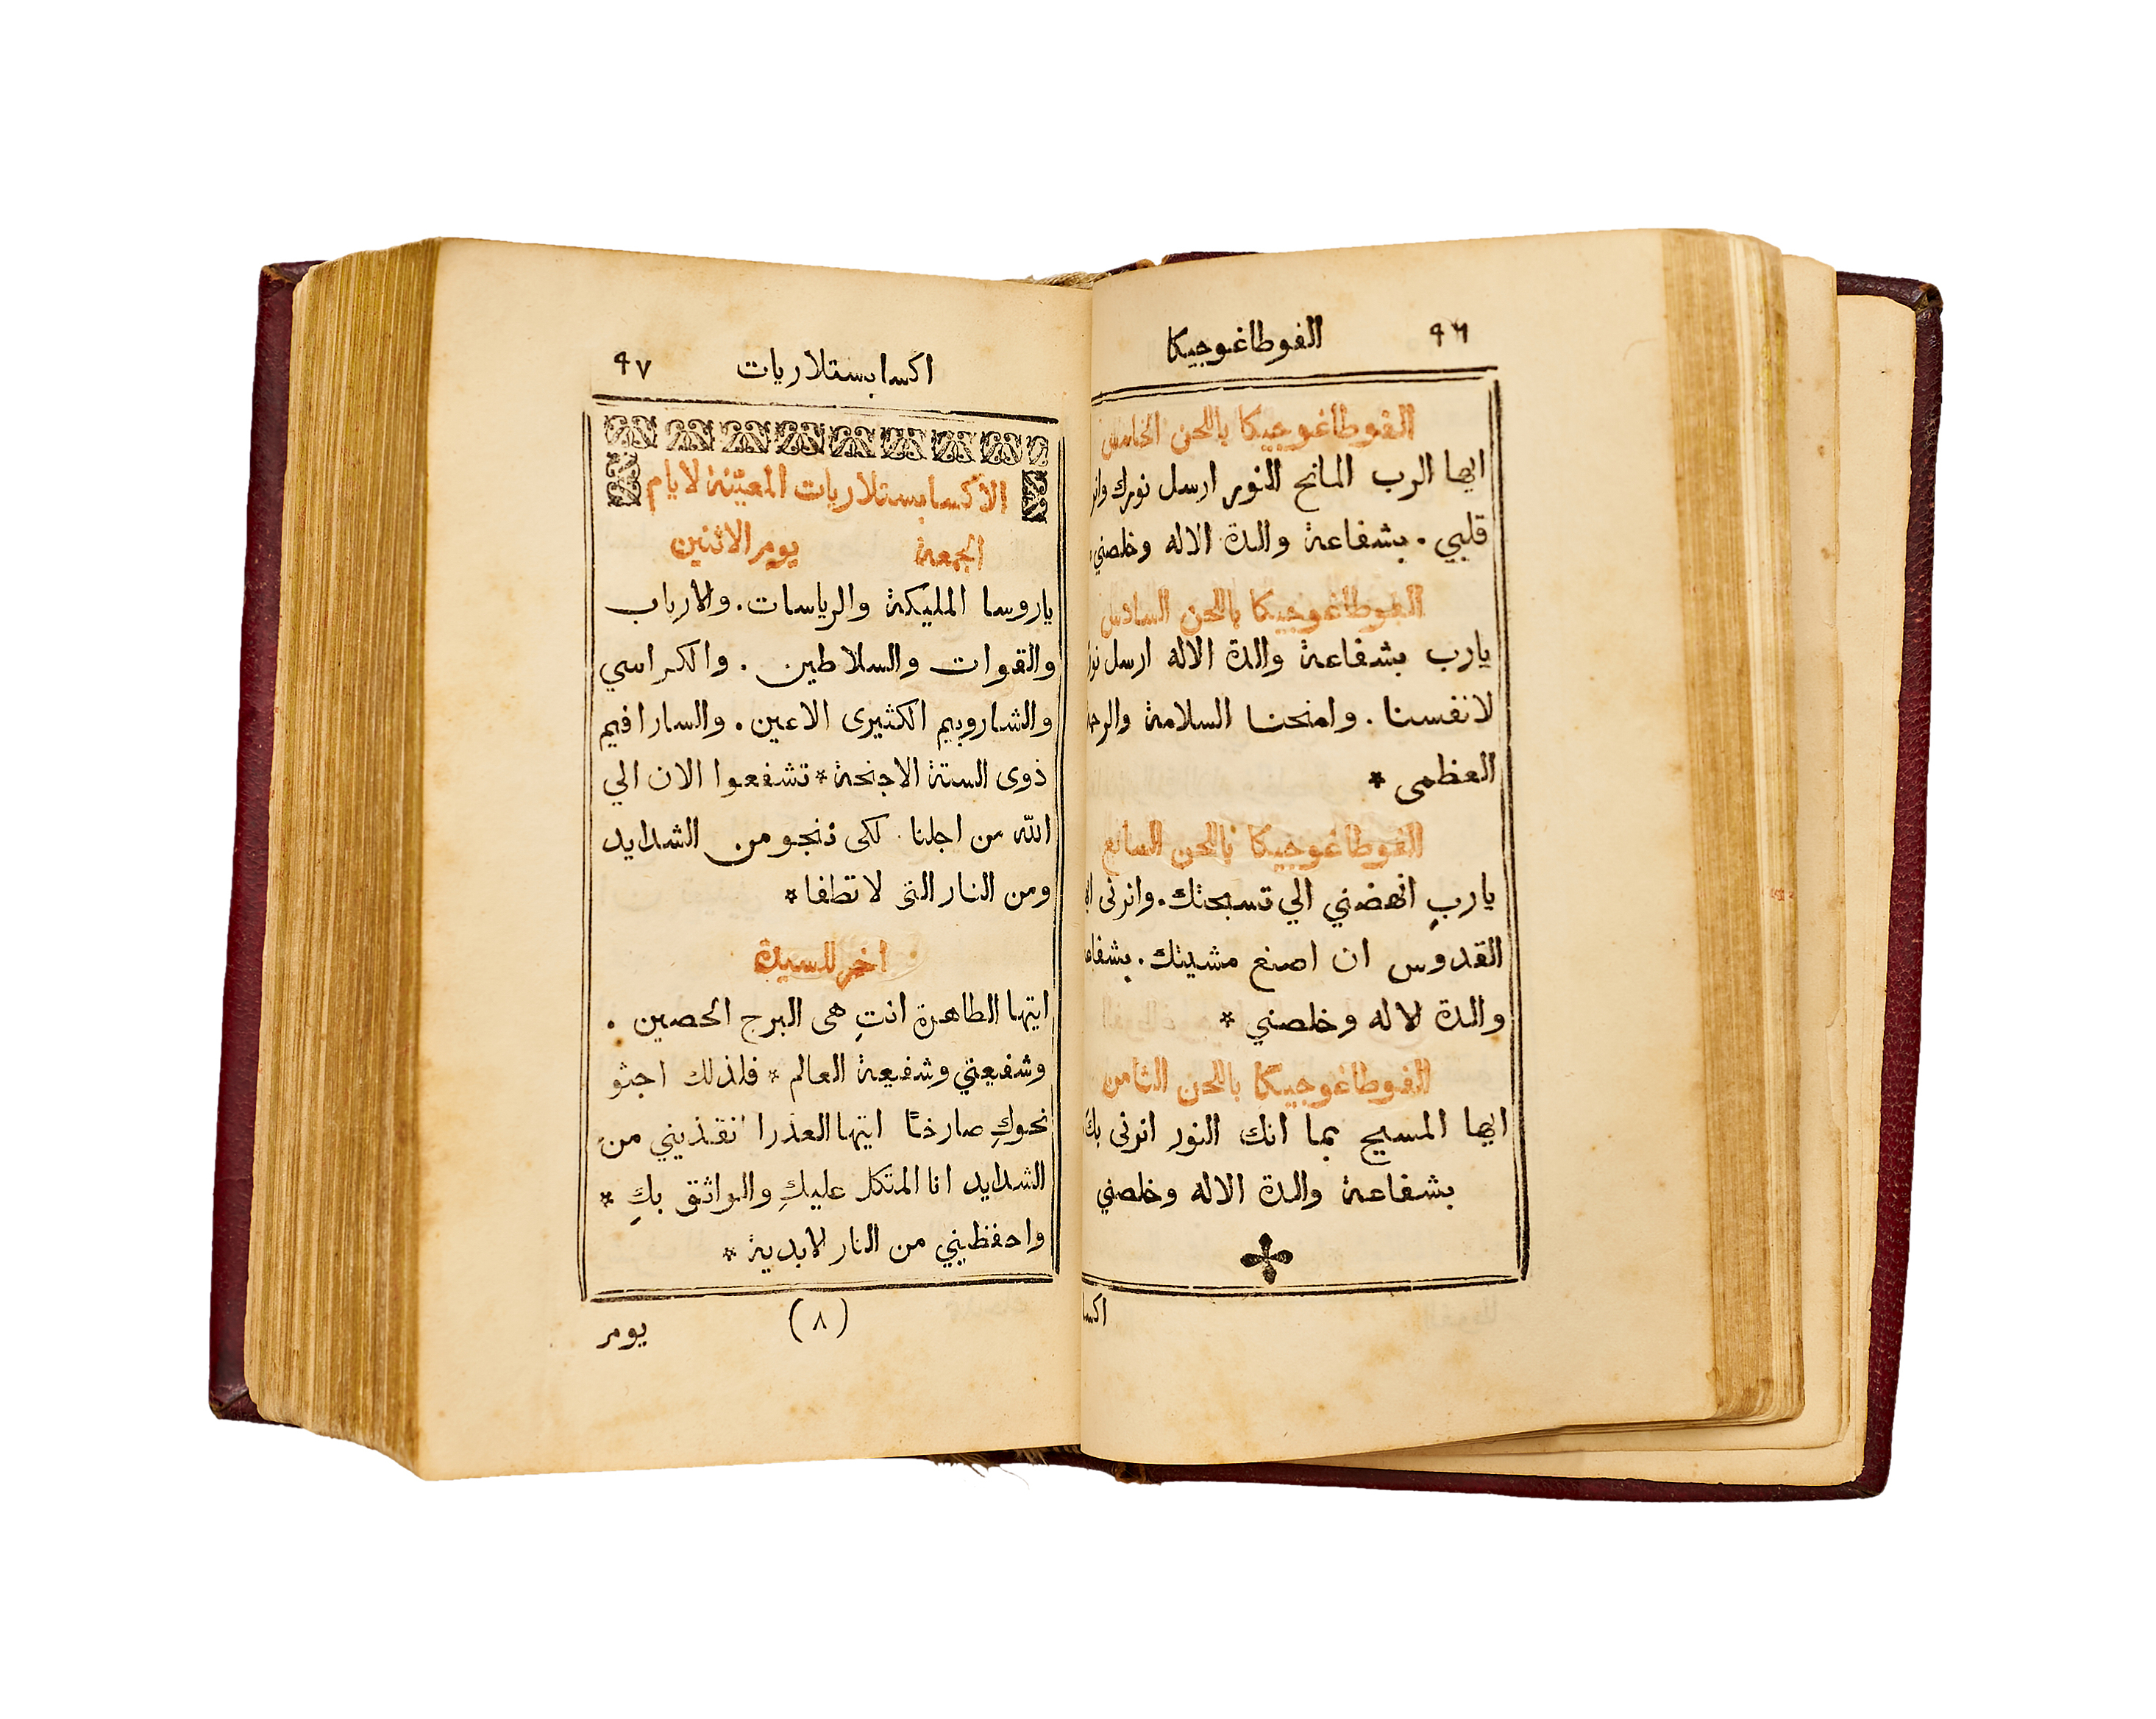 ٩٦ الفوطاغوجيكا
الفوطاغوجيكا باللحن الخامس
ايها الرب المانح النور ارسل نورك
قلبي . بشفاعة والدة الاله وخلصني
الفوطاغوجيكا باللحن السادس
يارب بشفاعة والدة الاله ارسل
لانفسنا . وامنحنا السلامة
العظمى *
الفوطاغوجيكا باللحن السابع
يارب انهضني الي تسبحتك . وانرنى
القدوس ان اصنع مشيتك .
والدة لاله وخلصني *
الفوطاغوجيكا باللحن الثامن
ايها المسيح بما انك النور انرنى بك
بشفاعة والدة الاله وخلصني
اكسا
اكسابستلاريات ٩٧
الاكسابستلاريات المعيّنة لايام
الجمعة يوم الاثنين
ياروسا المليكة والرياسات . والارباب
والقوات والسلاطين . والكراسي
والشاروبيم الكثيرى الاعين . والسارافيم
ذوى الستة الاجنحة * تشفعوا الان الي
الله من اجلنا . لكى ننجو من الشدايد
ومن النار التى لا تطفا *
اخر للسيدة
ايتها الطاهرة انتِ هى البرج الحصين .
وشفيعتي وشفيعة العالم * فلذلك اجثو
نحوكِ صارخًا ايتها العذرا انقذيني من
الشدايد انا المتكل عليكِ والواثق بكِ *
واحفظيني من النار لابدية *
(٨)
يوم